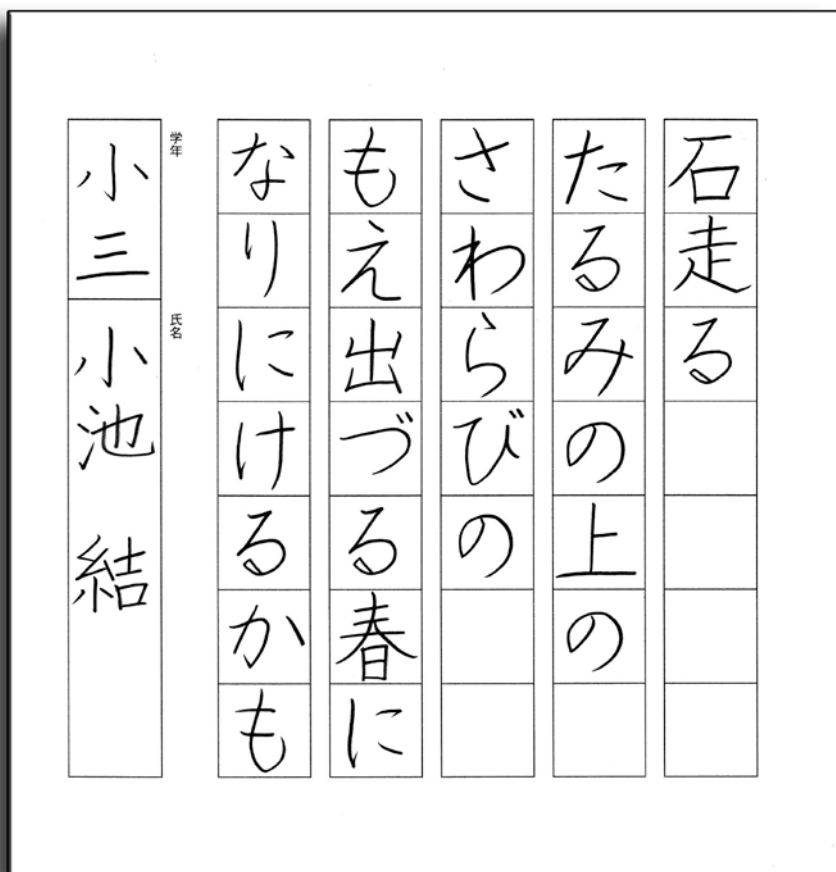 石走る
たるみの上の
さわらびの
もえ出づる春に
なりにけるかも
学年
小三
氏名
小池 結